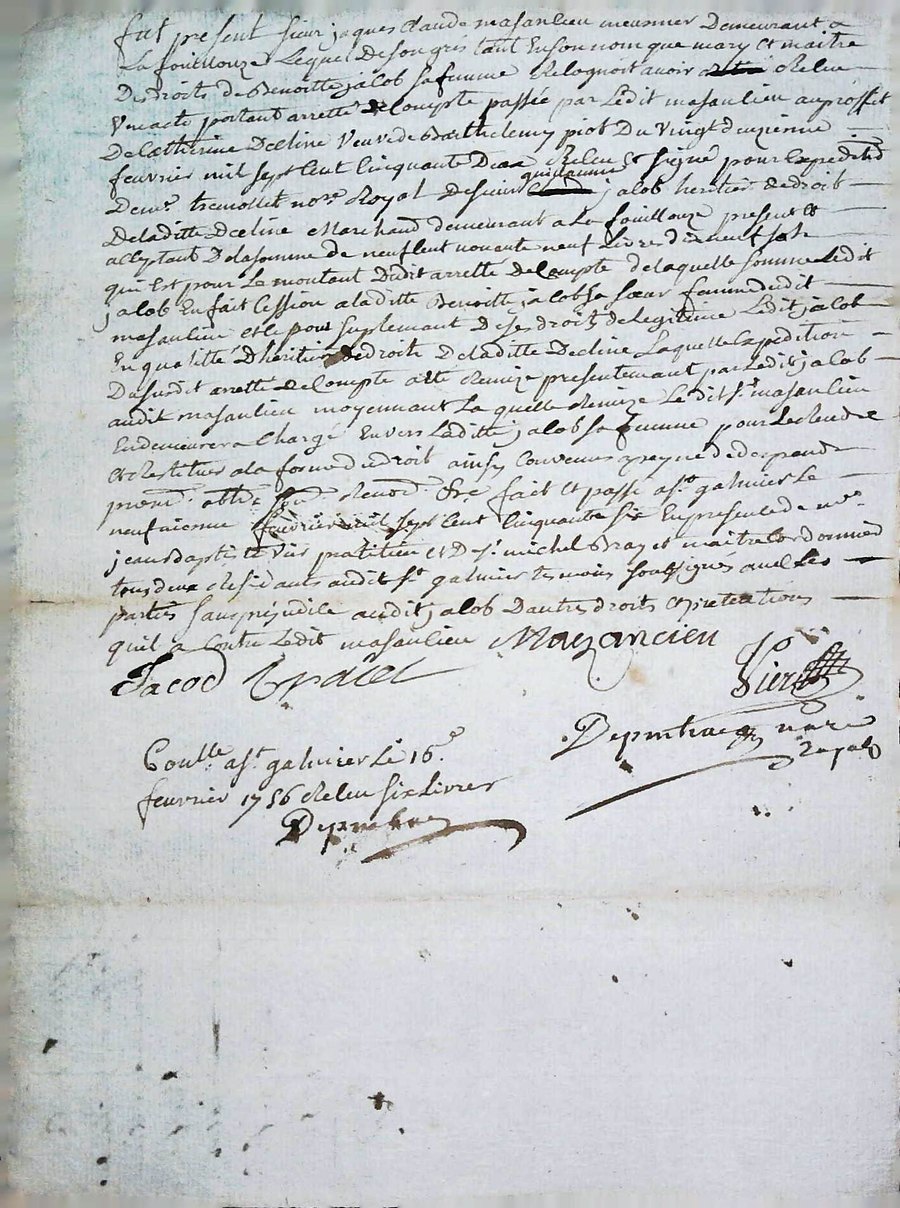 fut present sieur jaques Claude masanlieu meusnier Demeurant a
La fouillouze Lequel de son grés tant En son nom que mary Et maitre
Des droits de Benoitte jacob sa femme Relognoit avoir Releu
Un acte portant arretté de Compte passée par Ledit masanlieu au proffit
De Catherine Decline Veuve de Barthelemy piot Du vingt deuxienne
fevrier mil sept Cent Cinquante Deux Releu Et signé pour Expedition
De me. tremollet nore. Royal De guillaume jacob heritier de droit
De laditte Decline Marchand demeurant a La fouillouze present Et
acceptant De la somme de neuf Cent nonante neuf Livre dixneuf sols
qui Est pour Le montant Dudit arretté de Compte de laquelle somme Ledit
jacob En fait Cession a laditte Benoitte jacob sa sœur femme dudit
masanlieu Et Ce pour suplement De ses droits de legitime Ledit jacob
En qualitté D'heritier De droits De laditte Decline Laquelle Expedition
Du susdit arretté de Compte a Eté Remize presentement par Ledit jacob
audit masanlieu moyennant La quelle Remize Ledit sr. masanlieu
En demeurera Chargé Envers Laditte jacob sa femme pour Le Rendre
Et Restituer a la forme de droit ainsy Convenus a peyne de despand
prom. obte. Renod. &c fait Et passé a st. galmier Le
neufvienne fevrier mil sept Cent Cinquante six En presence de me.
jean Baptiste Vier pratitien Et De sr. michel Bray Et maitre Cordonnied
tous deux Residants audit st. galmier temoins soussignés avec Les
parties sans prejudice audit jacob D'autres droits Et pretentions
qu'il a Contre Ledit masanlieu Mazancieu
Jacod
Vier
Contlle. a st. galmier Le 16e
fevrier 1756 Releu six Livres
nore
Royal